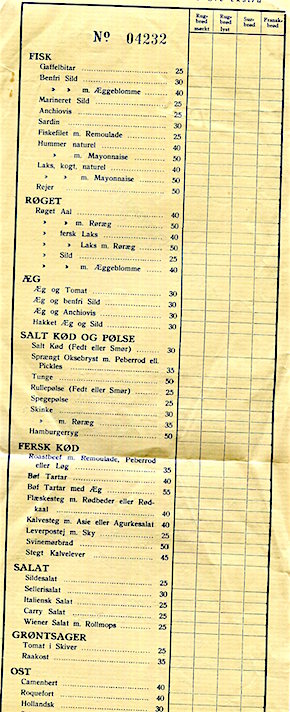 Nº 04232
Rug-brød mørkt
Rug-brød lyst
Sur-brød
Fransk-brød
FISK
Gaffelbitar 25
Benfri Sild 30
» » m. Æggeblomme 40
Marineret Sild 25
Anchiovis 25
Sardin 30
Fiskefilet m. Remoulade 25
Hummer naturel 40
» m. Mayonnaise 50
Laks, kogt, naturel 40
» » m. Mayonnaise 50
Rejer 50
RØGET
Røget Aal 40
» » m. Røræg 50
» fersk Laks 40
» » Laks m. Røræg 50
» Sild 25
» » m. Æggeblomme 40
ÆG
Æg og Tomat 30
Æg og benfri Sild 30
Æg og Anchiovis 30
Hakket Æg og Sild 30
SALT KØD OG PØLSE
Salt Kød (Fedt eller Smør) 30
Sprængt Oksebryst m. Peberrod ell.
Pickles 35
Tunge 50
Rullepølse (Fedt eller Smør) 25
Spegepølse 25
Skinke 30
» m. Røræg 35
Hamburgerryg 50
FERSK KØD
Roastbeef m. Remoulade, Peberrod
eller Løg 35
Bøf Tartar 40
Bøf Tartar med Æg 55
Flæskesteg m. Rødbeder eller Rød-
kaal 40
Kalvesteg m. Asie eller Agurkesalat 40
Leverpostej m. Sky 25
Svinemørbrad 50
Stegt Kalvelever 45
SALAT
Sildesalat 25
Sellerisalat 30
Italiensk Salat 25
Carry Salat 25
Wiener Salat m. Rollmops 25
GRØNTSAGER
Tomat i Skiver 25
Raakost 35
OST
Camenbert 40
Roquefort 40
Hollandsk 30